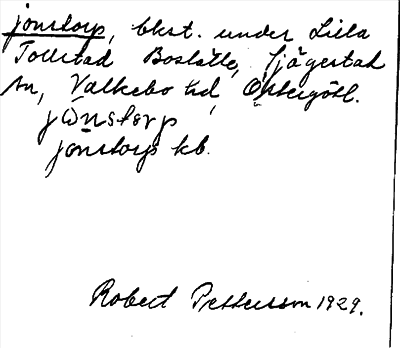 Jonstorp, bkst. under Lilla
Tollstad Boslätte, Sjögestad
sn, Valkebo hd, Östergötl.
jωnstorp
Jonstorp kb.
Robert Pettersson 1929.